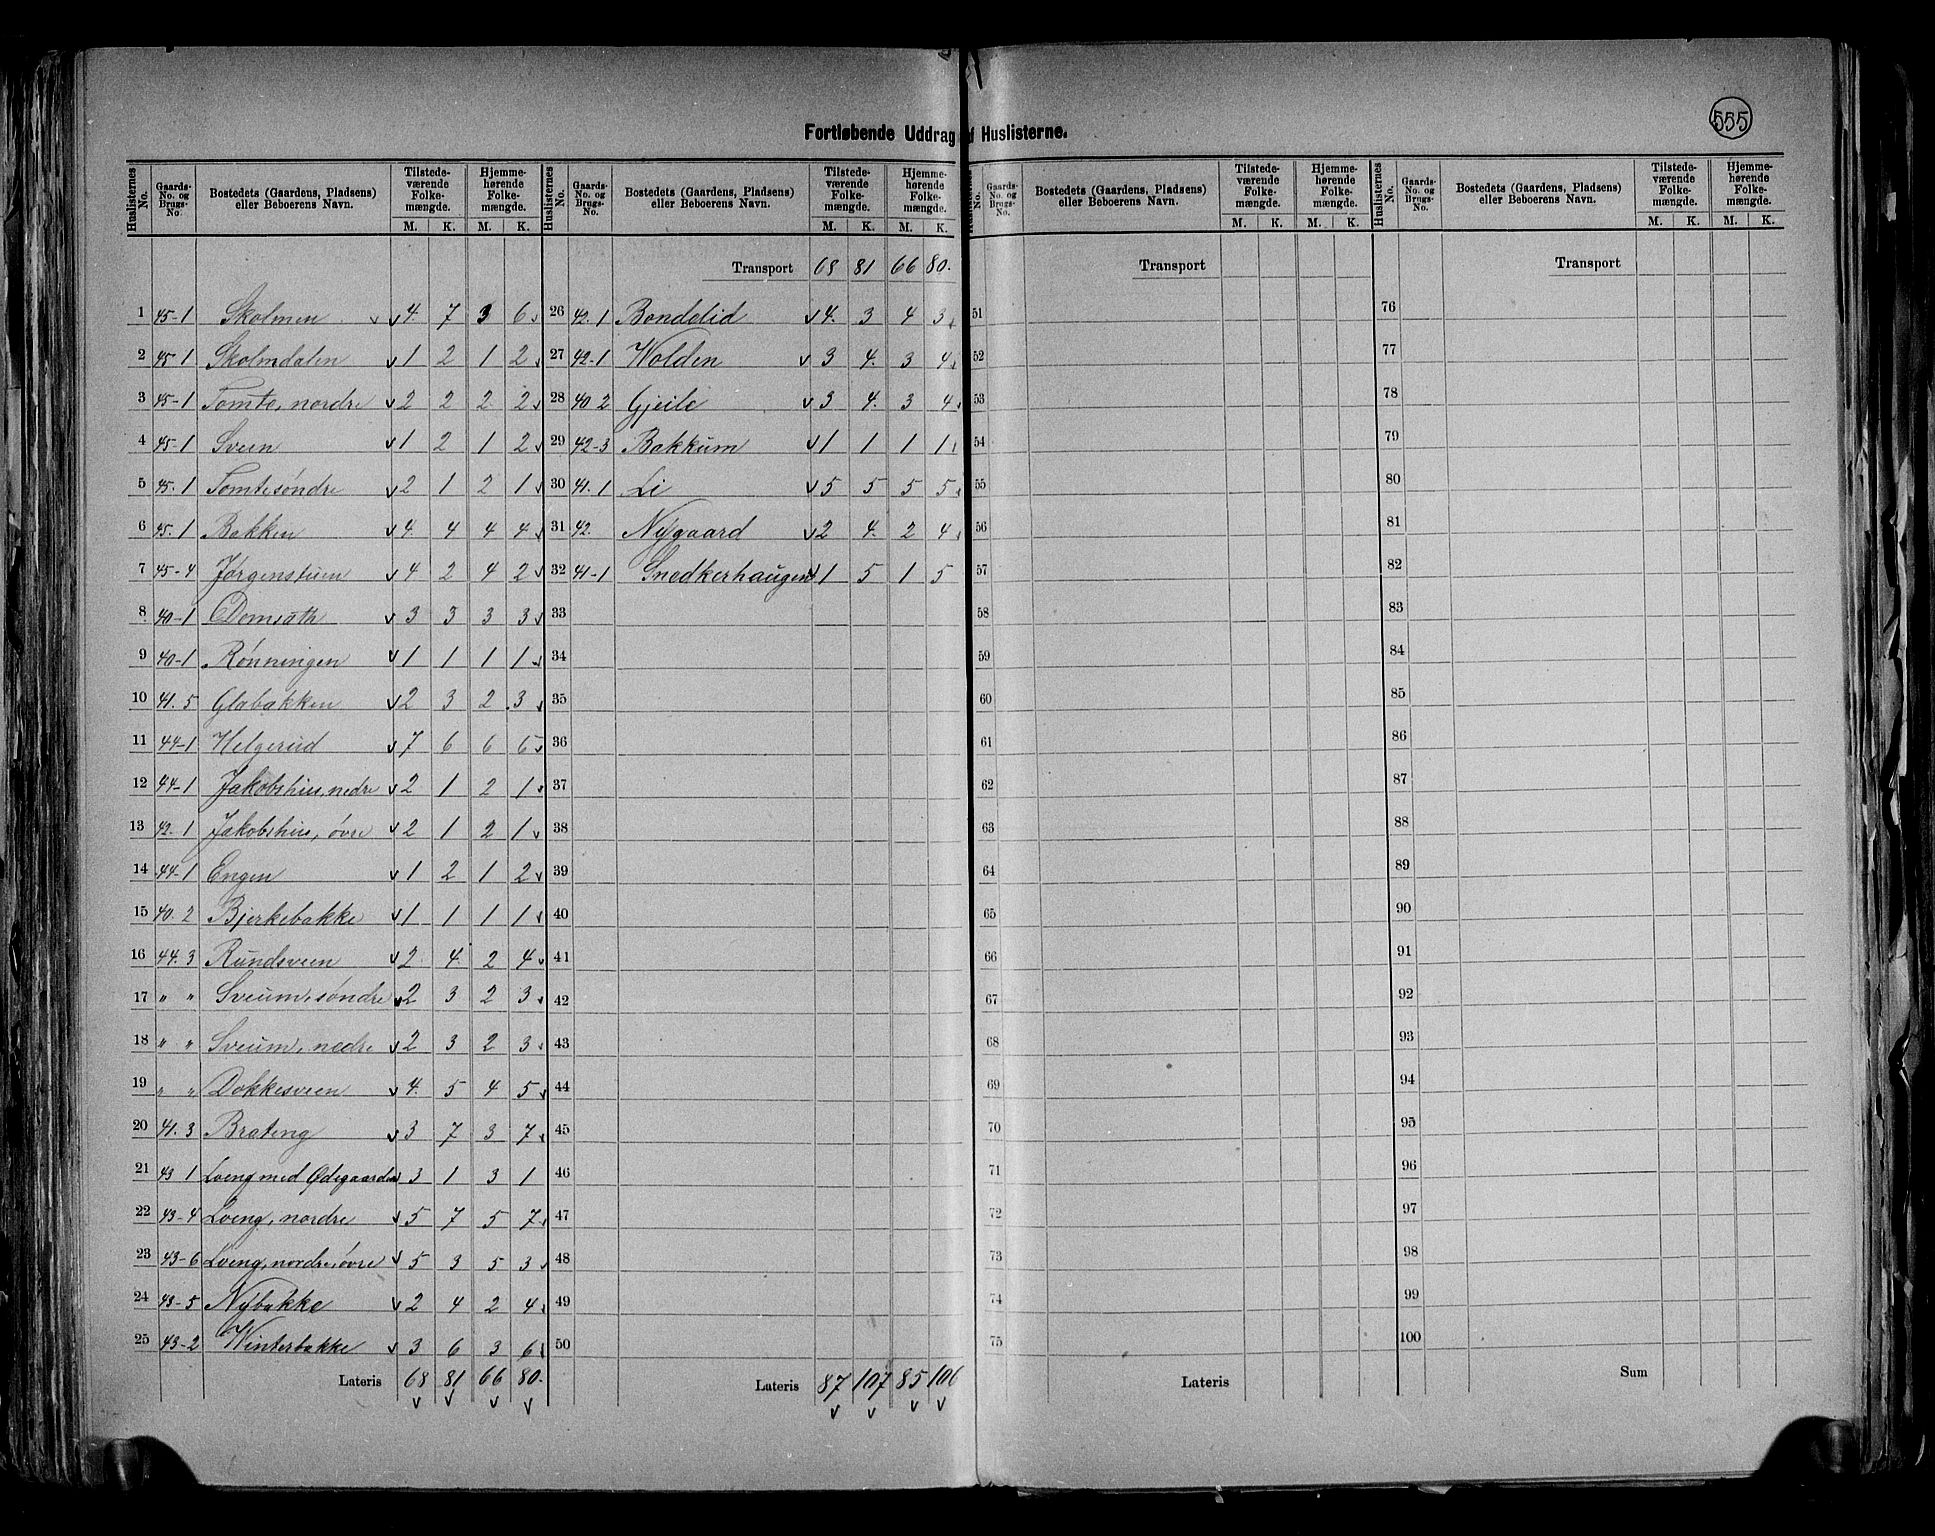 555
Fortløbende Uddrag af Huslisterne.
Huslisternes No. | Gaards-No. og Brugs-No. | Bostedets (Gaardens, Pladsens) eller Beboerens Navn. | Tilstedeværende Folkemængde. M. K. | Hjemmehørende Folkemængde. M. K.
1 45-1 Skolmen 4 7 3 6
2 45-1 Skolmdalen 1 2 1 2
3 45-1 Tomte, nordre 2 2 2 2
4 45-1 Sveen 1 2 1 2
5 45-1 Tomte søndre 2 1 2 1
6 45.1 Bakken 4 4 4 4
7 45-4 Jørgenstuen 4 2 4 2
8 40-1 Domsæth 3 3 3 3
9 40-1 Rønningen 1 1 1 1
10 41.5 Glabakken 2 3 2 3
11 44-1 Helgerud 7 6 6 6
12 44-1 Jakobshus, nedre 2 1 2 1
13 42-1 Jakobshus, øvre 2 1 2 1
14 44-1 Engen 1 2 1 2
15 40.2 Bjerkebakke 1 1 1 1
16 44.3 Rundsveen 2 4 2 4
17 " " Sveum, søndre 2 3 2 3
18 " " Sveum, nedre 2 3 2 3
19 " " Dokkesveen 4 5 4 5
20 41.3 Brateng 3 7 3 7
21 43 1 Loeng med Ødegaarden 3 1 3 1
22 43-4 Loeng, nordre 5 7 5 7
23 43-6 Loeng, nordre, øvre 5 3 5 3
24 43-5 Nybakke 2 4 2 4
25 43-2 Winterbakke 3 6 3 6
Lateris 68 81 66 80.
Huslisternes No. | Gaards-No. og Brugs-No. | Bostedets (Gaardens, Pladsens) eller Beboerens Navn. | Tilstedeværende Folkemængde. M. K. | Hjemmehørende Folkemængde. M. K.
Transport 68 81 66 80.
26 42.1 Bondelid 4 3 4 3
27 42-1 Wolden 3 4 3 4
28 40 2 Gjeile 3 4 3 4
29 42-3 Bakkum 1 1 1 1
30 41.1 Li 5 5 5 5
31 42. Nygaard 2 4 2 4
32 41-1 Snedkerhaugen 1 5 1 5
33
34
35
36
37
38
39
40
41
42
43
44
45
46
47
48
49
50
Lateris 87 107 85 106
Gaards-No. og Brugs-No. | Bostedets (Gaardens, Pladsens) eller Beboerens Navn. | Tilstedeværende Folkemængde. M. K. | Hjemmehørende Folkemængde. M. K.
Transport
51
52
53
54
55
56
57
58
59
60
61
62
63
64
65
66
67
68
69
70
71
72
73
74
75
Lateris
Huslisternes No. | Gaards-No. og Brugs-No. | Bostedets (Gaardens, Pladsens) eller Beboerens Navn. | Tilstedeværende Folkemængde. M. K. | Hjemmehørende Folkemængde. M. K.
Transport
76
77
78
79
80
81
82
83
84
85
86
87
88
89
90
91
92
93
94
95
96
97
98
99
100
Sum